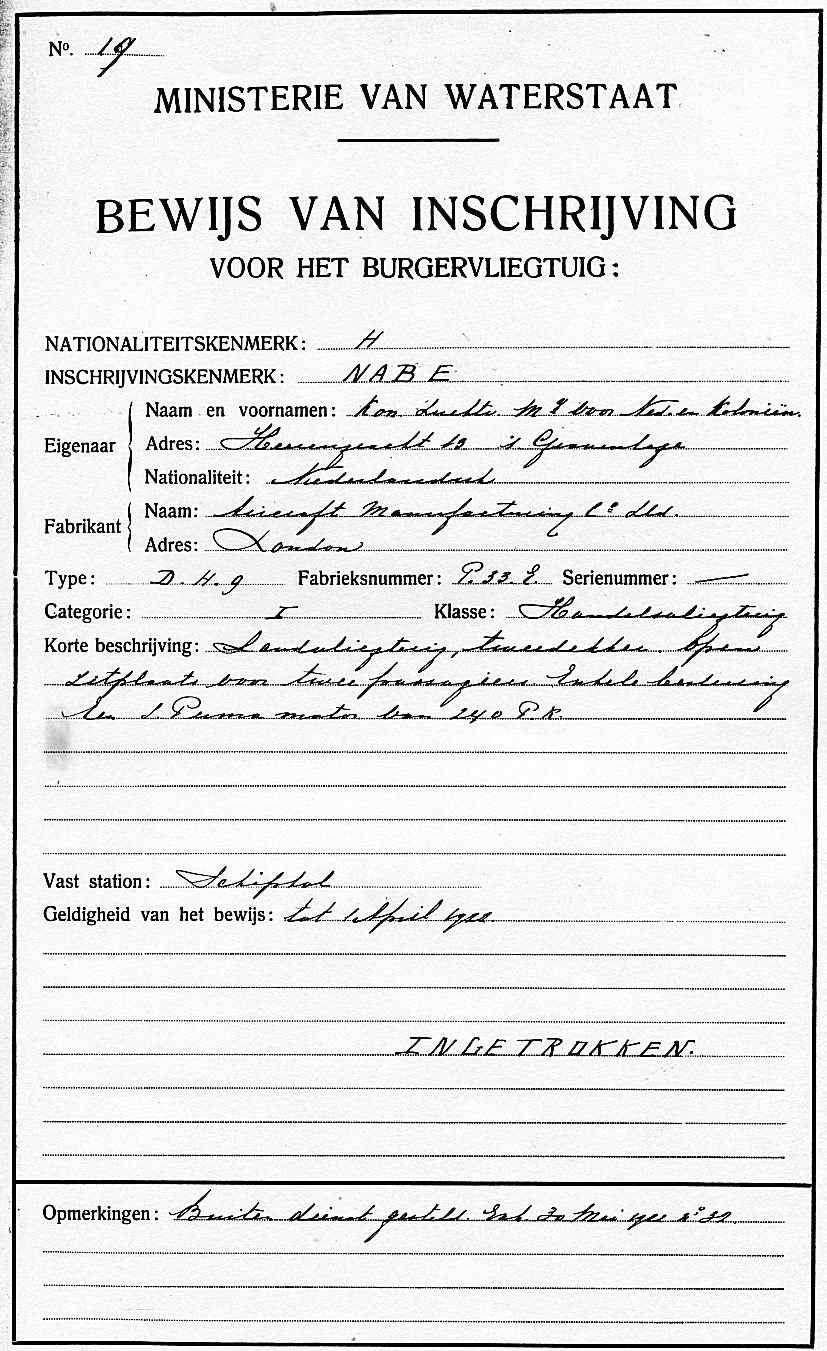 No. 19
MINISTERIE VAN WATERSTAAT
BEWIJS VAN INSCHRIJVING
VOOR HET BURGERVLIEGTUIG:
NATIONALITEITSKENMERK: H
INSCHRIJVINGSKENMERK: NABE
Eigenaar
Naam en voornamen: Kon Luchtv. Mij voor Ned. en Koloniën.
Adres: Heerengracht 13 's Gravenhage
Nationaliteit: Nederlandsch
Fabrikant
Naam: Aircraft Manufacturing Co Ltd.
Adres: London
Type: D.H.9 Fabrieksnummer: P.33.E. Serienummer: —
Categorie: I Klasse: Handelsvliegtuig
Korte beschrijving: Landvliegtuig, tweedekker. Open
zitplaats voor twee passagiers Enkele besturing
Een S. Puma motor van 240 P.K.
Vast station: Schiphol
Geldigheid van het bewijs: tot 1 April 1922
INGETROKKEN.
Opmerkingen: Buiten dienst gesteld. 30 Mei 1922 no 32